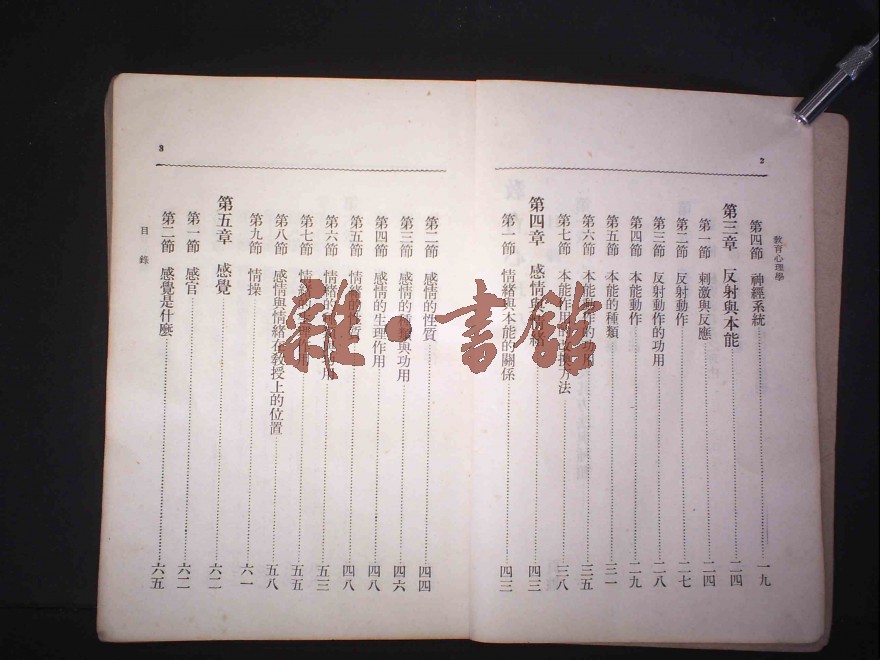 2
教育心理學
第四節 神經系統……一九
第三章 反射與本能……二四
第一節 刺激與反應……二四
第二節 反射動作……二七
第三節 反射動作的功用……二八
第四節 本能動作……二九
第五節 本能的種類……三一
第六節 本能動作的 用……三五
第七節 本能作用 方法……三八
第四章 感情與情緒……四三
第一節 情緒與本能的關係……四三
3
第二節 感情的性質……四四
第三節 感情的種類與功用……四六
第四節 感情的生理作用……四八
第五節 情緒的性質……四八
第六節 情緒的 用……五三
第七節 情緒的 作用……五五
第八節 感情與情緒在教授上的位置……五八
第九節 情操……六一
第五章 感覺……六二
第一節 感官……六二
第二節 感覺是什麼……六五
目錄
雜·書館